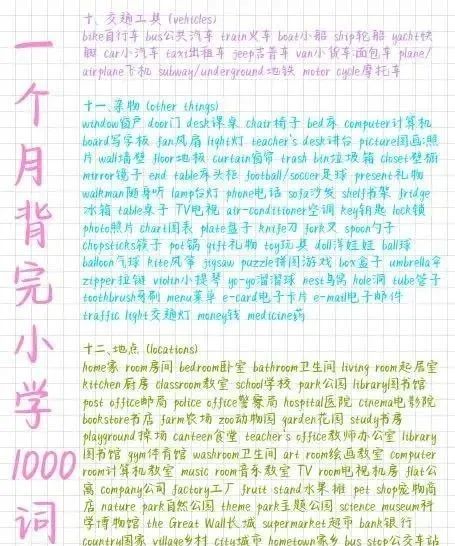 一个月背完小学1000词
十、交通工具 (vehicles)
bike自行车 bus公共汽车 train火车 boat小船 ship轮船 yacht快
艇 car小汽车 taxi出租车 jeep吉普车 van小货车;面包车 plane/
airplane飞机 subway/underground地铁 motor cycle摩托车
十一、杂物 (other things)
window窗户 door门 desk课桌 chair椅子 bed床 computer计算机
board写字板 fan风扇 light灯 teacher's desk讲台 picture图画;照
片 wall墙壁 floor地板 curtain窗帘 trash bin垃圾箱 closet壁橱
mirror镜子 end table床头柜 football/soccer足球 present礼物
walkman随身听 lamp台灯 phone电话 sofa沙发 shelf书架 fridge
冰箱 table桌子 TV电视 air-conditioner空调 key钥匙 lock锁
photo照片 chart图表 plate盘子 knife刀 fork叉 spoon勺子
chopsticks筷子 pot锅 gift礼物 toy玩具 doll洋娃娃 ball球
balloon气球 kite风筝 jigsaw puzzle拼图游戏 box盒子 umbrella伞
zipper拉链 violin小提琴 yo-yo溜溜球 nest鸟窝 hole洞 tube管子
toothbrush牙刷 menu菜单 e-card电子卡片 e-mail电子邮件
traffic light交通灯 money钱 medicine药
十二、地点 (locations)
home家 room房间 bedroom卧室 bathroom卫生间 living room起居室
kitchen厨房 classroom教室 school学校 park公园 library图书馆
post office邮局 police office警察局 hospital医院 cinema电影院
bookstore书店 farm农场 zoo动物园 garden花园 study书房
playground操场 canteen食堂 teacher's office教师办公室 library
图书馆 gym体育馆 washroom卫生间 art room绘画教室 computer
room计算机教室 music room音乐教室 TV room电视机房 flat公
寓 company公司 factory工厂 fruit stand水果摊 pet shop宠物商
店 nature park自然公园 theme park主题公园 science museum科
学博物馆 the Great Wall长城 supermarket超市 bank银行
country国家 village乡村 city城市 hometown家乡 bus stop公交车站